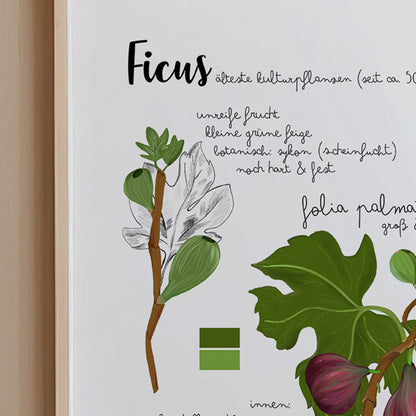 Ficus älteste kulturpflanzen (seit ca. 50
unreife frucht
kleine grüne feige
botanisch: sykon (scheinfucht)
noch hart & fest
folia palma
groß &
innen: